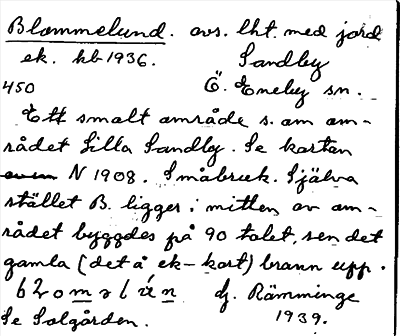 Blommelund. avs. lht. med jord
ek. hb 1936. Sandby
450 Ö. Eneby sn.
Ett smalt område s. om om-
rådet Lilla Sandby. Se kartan
N 1908. Småbruk. Själva
stället B. ligger i mitten av om-
rådet byggdes på 90 talet, sen det
gamla (det å ek-kart) brann upp.
Rämminge
Se Solgården. 1939.